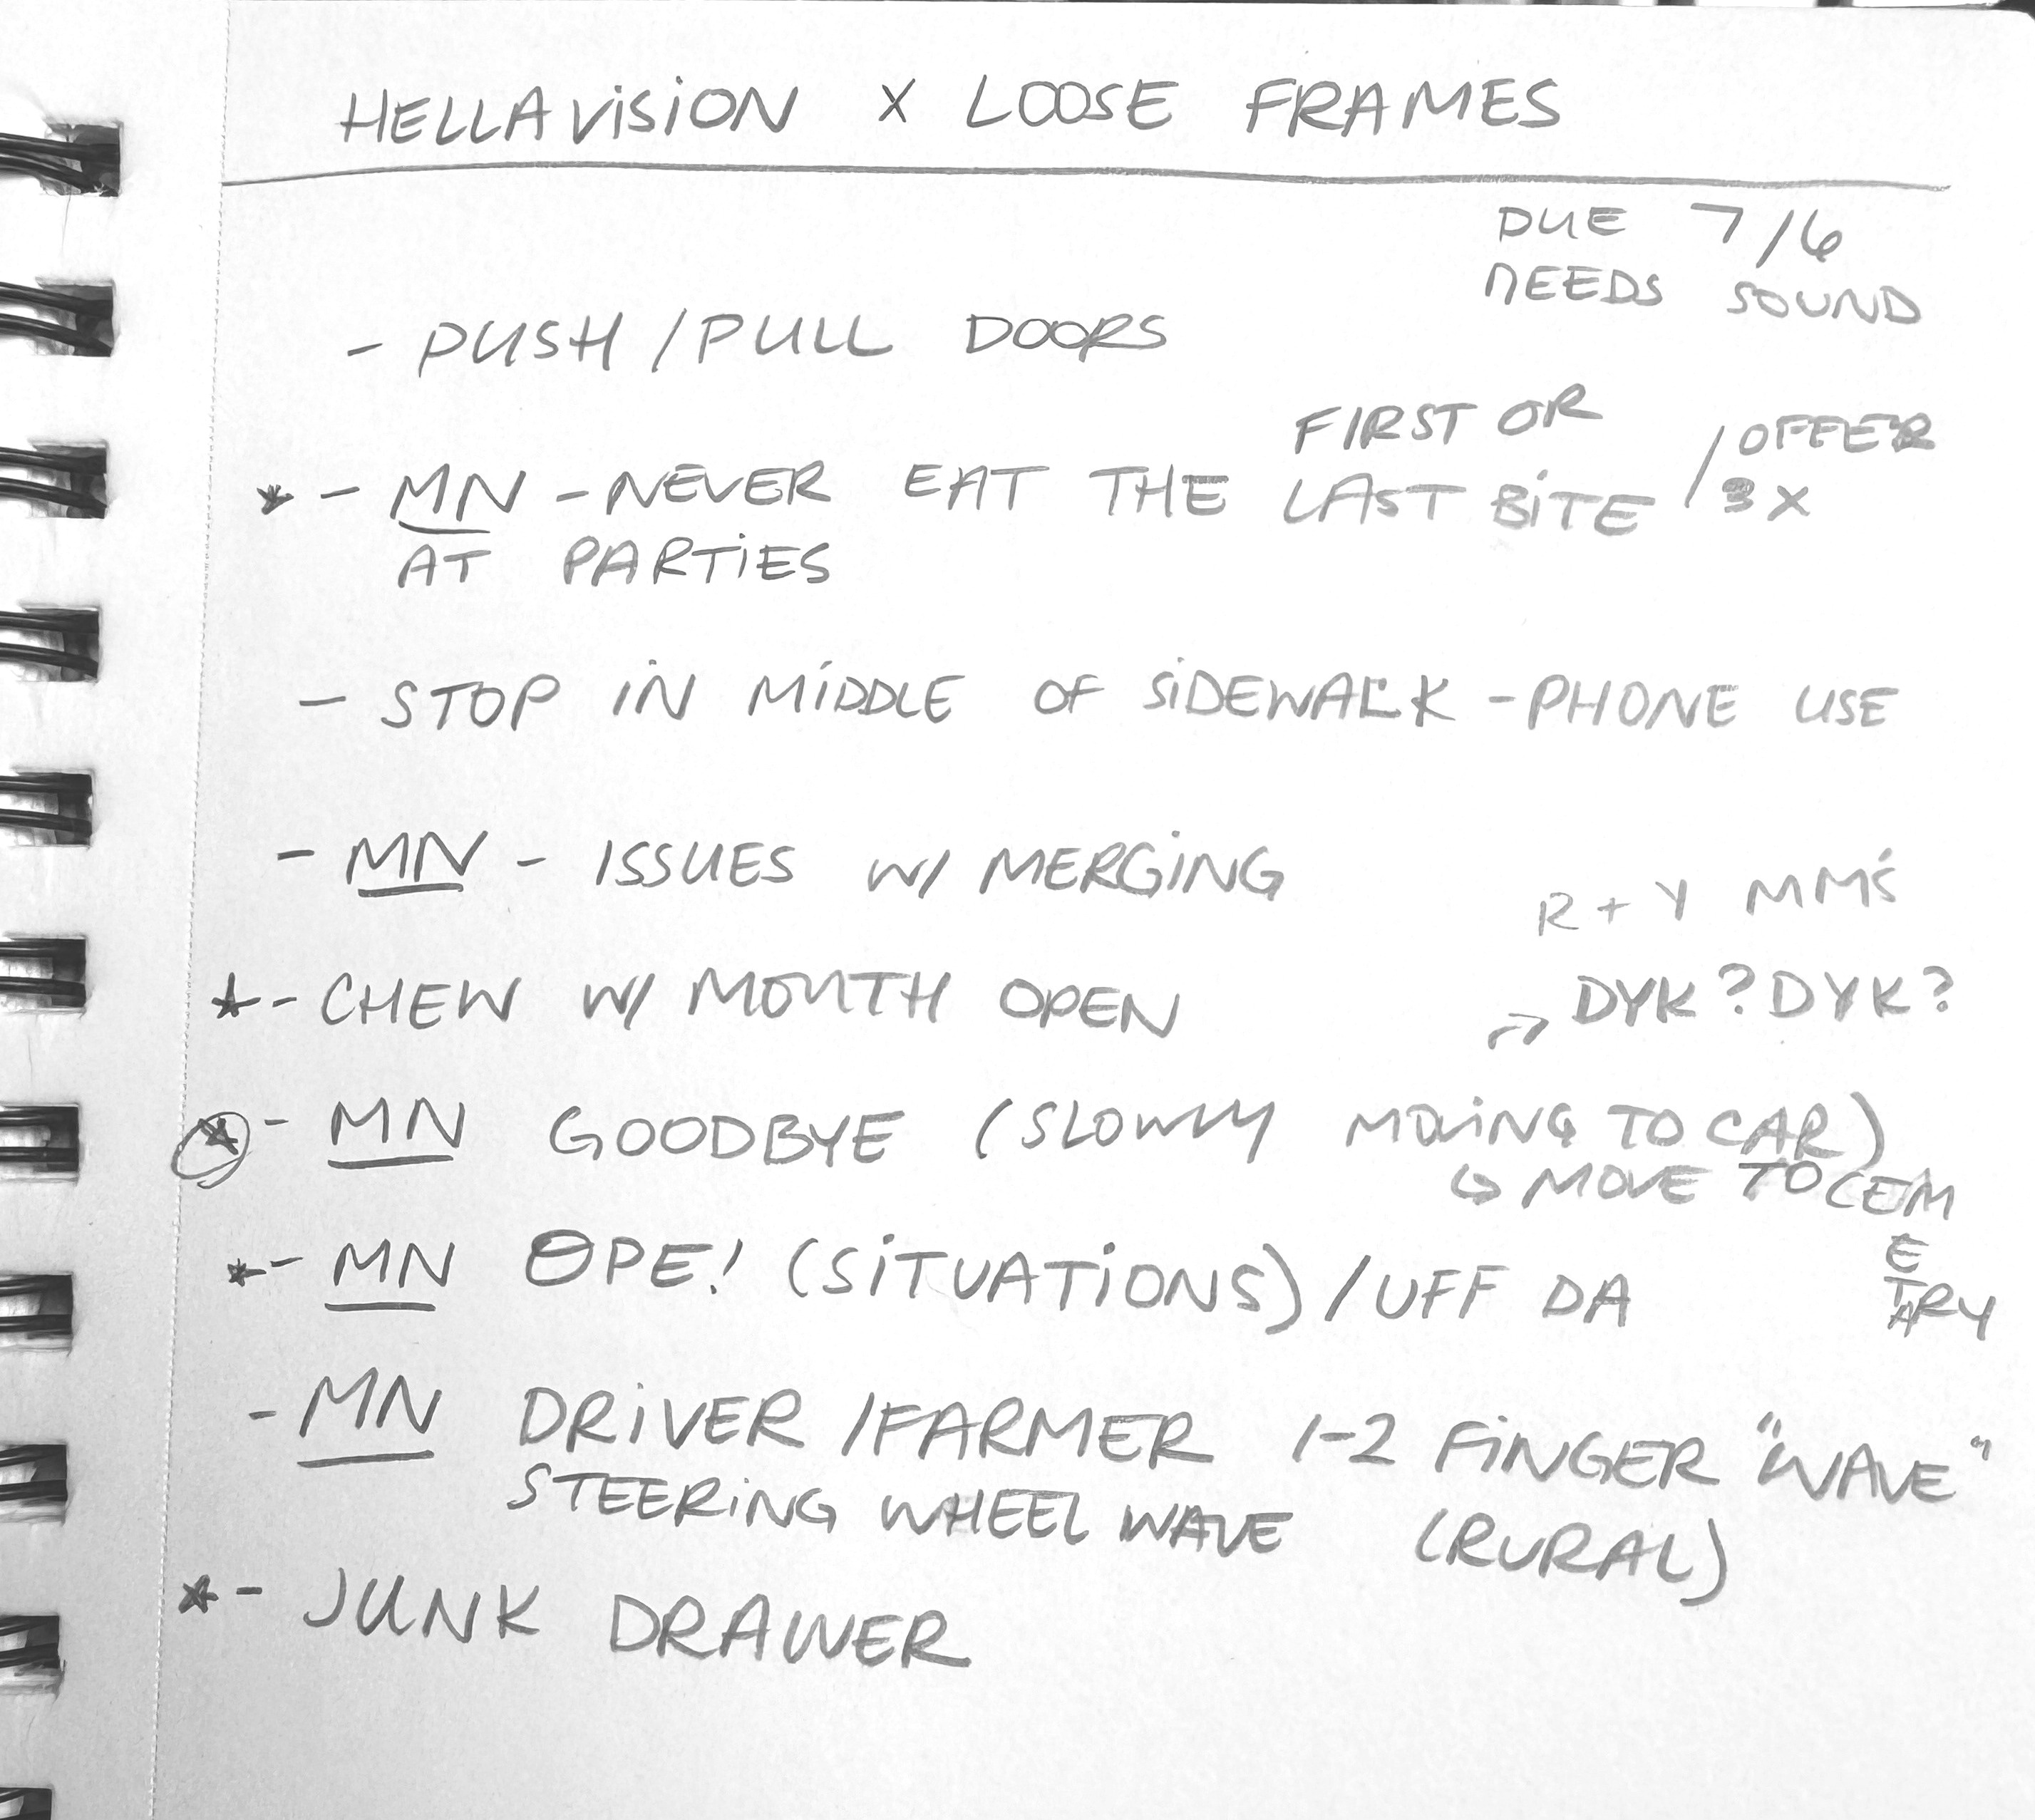 HELLAVISION X LOOSE FRAMES
DUE 7/6
NEEDS SOUND
- PUSH/PULL DOORS
FIRST OR
* - MN - NEVER EAT THE LAST BITE / OFFER 3X
AT PARTIES
- STOP IN MIDDLE OF SIDEWALK - PHONE USE
- MN - ISSUES W/ MERGING
R + Y MM'S
* - CHEW W/ MOUTH OPEN
→ DYK? DYK?
* - MN GOODBYE (SLOWLY MOVING TO CAR)
↳ MOVE TO CEM
E
TARY
* - MN OPE! (SITUATIONS) / UFF DA
- MN DRIVER/FARMER 1-2 FINGER "WAVE"
STEERING WHEEL WAVE (RURAL)
* - JUNK DRAWER